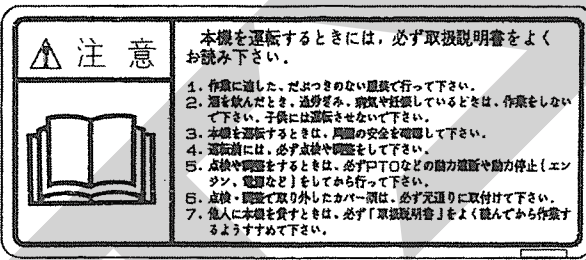 注 意
本機を運転するときには，必ず取扱説明書をよく
お読み下さい．
1. 作業に適した、だぶつきのない服装で行って下さい．
2. 酒を飲んだとき，過労ぎみ，病気や妊娠しているときは，作業をしない
で下さい．子供には運転させないで下さい．
3. 本機を運転するときは，周囲の安全を確認して下さい．
4. 運転前には，必ず点検や調整をして下さい．
5. 点検や調整をするときは，必ずPTOなどの動力遮断や動力停止(エン
ジン，電源など)をしてから行って下さい．
6. 点検・調整で取り外したカバー類は，必ず元通りに取付けて下さい．
7. 他人に本機を貸すときは，必ず「取扱説明書」をよく読んでから作業す
るようすすめて下さい．